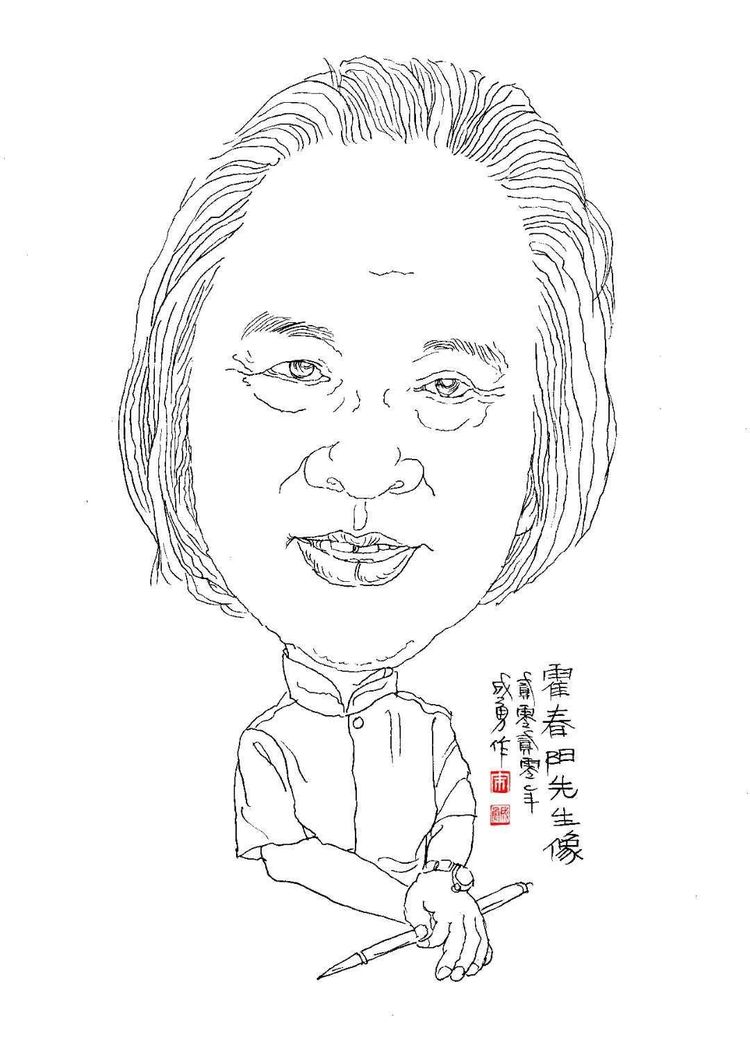 霍春阳先生像
貳零貳零年
成勇作